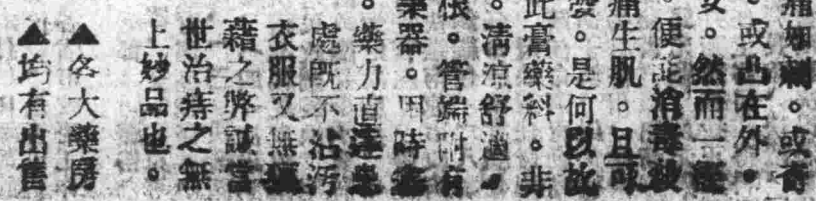 痛如刺。或奇
。或凸在外。
女。然而一經
。便能消毒被
痛生肌。且可
愛。是何以故
此膏藥料。非
。清涼舒適。
根。管端附有
藥器。用時塞
。藥力直達患
處既不沾污
衣服又無
藉之弊誠當
世治痔之無
上妙品也。
▲各大藥房
▲均有出售